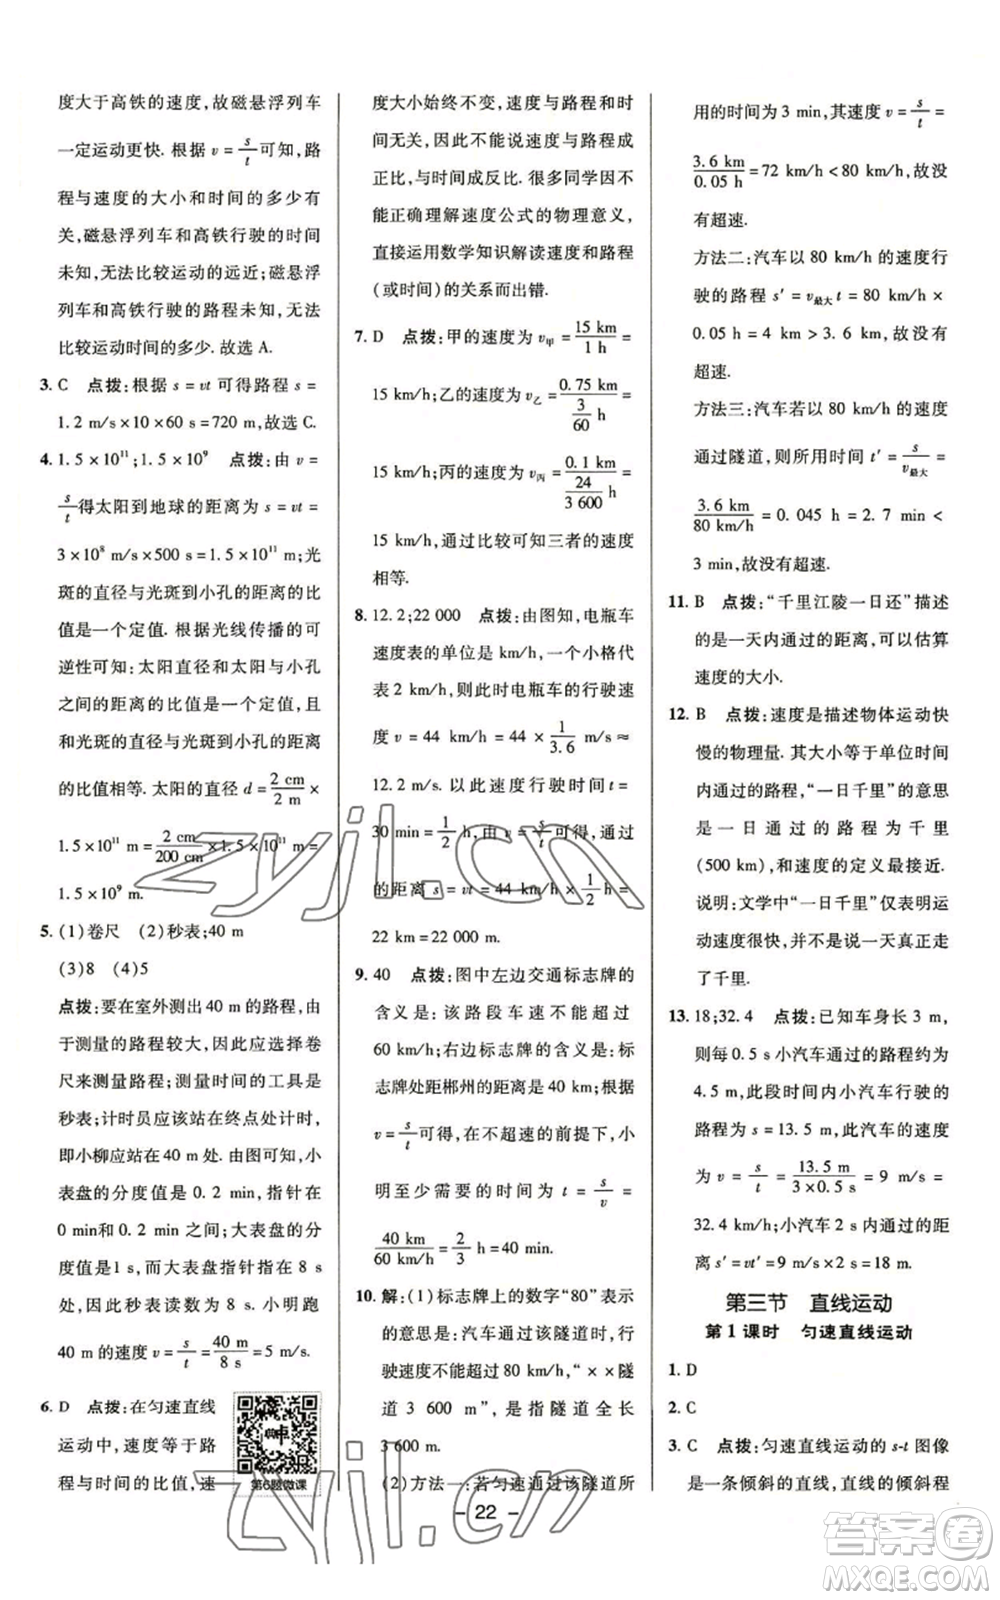 度大于高铁的速度,故磁悬浮列车
一定运动更快. 根据 v = s/t 可知,路
程与速度的大小和时间的多少有
关,磁悬浮列车和高铁行驶的时间
未知,无法比较运动的远近;磁悬浮
列车和高铁行驶的路程未知,无法
比较运动时间的多少. 故选 A.
3. C 点拨:根据 s = vt 可得路程 s =
1. 2 m/s × 10 × 60 s = 720 m,故选 C.
4. 1. 5 × 10¹¹;1. 5 × 10⁹ 点拨:由 v =
s/t 得太阳到地球的距离为 s = vt =
3 × 10⁸ m/s × 500 s = 1. 5 × 10¹¹ m;光
斑的直径与光斑到小孔的距离的比
值是一个定值. 根据光线传播的可
逆性可知:太阳直径和太阳与小孔
之间的距离的比值是一个定值,且
和光斑的大小与光斑到小孔的距离
的比值相等. 太阳的直径 d = 2 cm/2 m ×
1. 5 × 10¹¹ m = 2 cm/200 cm × 1. 5 × 10¹¹ m =
1. 5 × 10⁹ m.
5. (1)卷尺 (2)秒表;40 m
(3)8 (4)5
点拨:要在室外测出 40 m 的路程,由
于测量的路程较大,因此应选择卷
尺来测量路程;测量时间的工具是
秒表;计时员应该站在终点处计时,
即小柳应站在 40 m 处. 由图可知,小
表盘的分度值是 0. 2 min,指针在
0 min和 0. 2 min 之间;大表盘的分
度值是1 s,而大表盘指针指在 8 s
处,故停表读数为 8 s. 小明跑
40 m 的速度 v = s/t = 40 m/8 s = 5 m/s.
6. D 点拨:在匀速直线
运动中,速度等于路
程与时间的比值,速
第6题微课
度大小始终不变,速度与路程和时
间无关,因此不能说速度与路程成
正比,与时间成反比. 很多同学因不
能正确理解速度公式的物理意义,
直接运用数学知识解读速度和路程
(或时间)的关系而出错.
7. D 点拨:甲的速度为 v甲 = 15 km/1 h =
15 km/h;乙的速度为 v乙 = 0. 75 km/(3/60 h) =
15 km/h;丙的速度为 v丙 = 0. 1 km/(24/3 600 h) =
15 km/h,通过比较可知三者的速度
相等.
8. 12. 2;22 000 点拨:由图知,电瓶车
速度表的单位是 km/h,一个小格代
表 2 km/h,则此时电瓶车的行驶速
度 v = 44 km/h = 44 × 1/3. 6 m/s ≈
12. 2 m/s. 以此速度行驶时间 t =
30 min = 1/2 h,由 v = s/t 可得,通过
的距离 s = vt = 44 km/h × 1/2 h =
22 km = 22 000 m.
9. 40 点拨:图中左边交通标志牌的
含义是:该路段车速不能超过
60 km/h;右边标志牌的含义是:标
志牌处距郴州的距离是40 km;根据
v = s/t 可得,在不超速的前提下,小
明至少需要的时间为 t = s/v =
40 km/60 km/h = 2/3 h = 40 min.
10. 解:(1)标志牌上的数字“80”表示
的含义是:汽车通过该隧道时,行
驶速度不能超过 80 km/h,“××隧
道 3 600 m”,是指隧道全长
3 600 m.
(2)方法一:若匀速通过该隧道所
用的时间为 3 min,其速度 v = s/t =
3. 6 km/0. 05 h = 72 km/h < 80 km/h,故没
有超速.
方法二:汽车以 80 km/h 的速度行
驶的路程 s′ = v最大 t = 80 km/h ×
0. 05 h = 4 km > 3. 6 km,故没有
超速.
方法三:汽车若以 80 km/h 的速度
通过隧道,则所用时间 t′ = s/v最大 =
3. 6 km/80 km/h = 0. 045 h = 2. 7 min <
3 min,故没有超速.
11. B 点拨:“千里江陵一日还”描述
的是一天内通过的距离,可以估算
速度的大小.
12. B 点拨:速度是描述物体运动快
慢的物理量. 其大小等于单位时间
内通过的路程,“一日千里”的意思
是一日通过的路程为千里
(500 km),与速度的定义最接近.
说明:文学中“一日千里”仅表明运
动速度很快,并不是说一天真正走
了千里.
13. 18;32. 4 点拨:已知车身长 3 m,
则每 0. 5 s 小汽车通过的路程约为
4. 5 m,此段时间内小汽车行驶的
路程为 s = 13. 5 m,此汽车的速度
为 v = s/t = 13. 5 m/3 × 0. 5 s = 9 m/s =
32. 4 km/h;小汽车 2 s 内通过的距
离 s′ = vt′ = 9 m/s × 2 s = 18 m.
第三节 直线运动
第 1 课时 匀速直线运动
1. D
2. C
3. C 点拨:匀速直线运动的 s-t 图像
是一条倾斜的直线,直线的倾斜程
- 22 -
zyjl.cn
zyjl.cn
答案圈
MXQE.COM